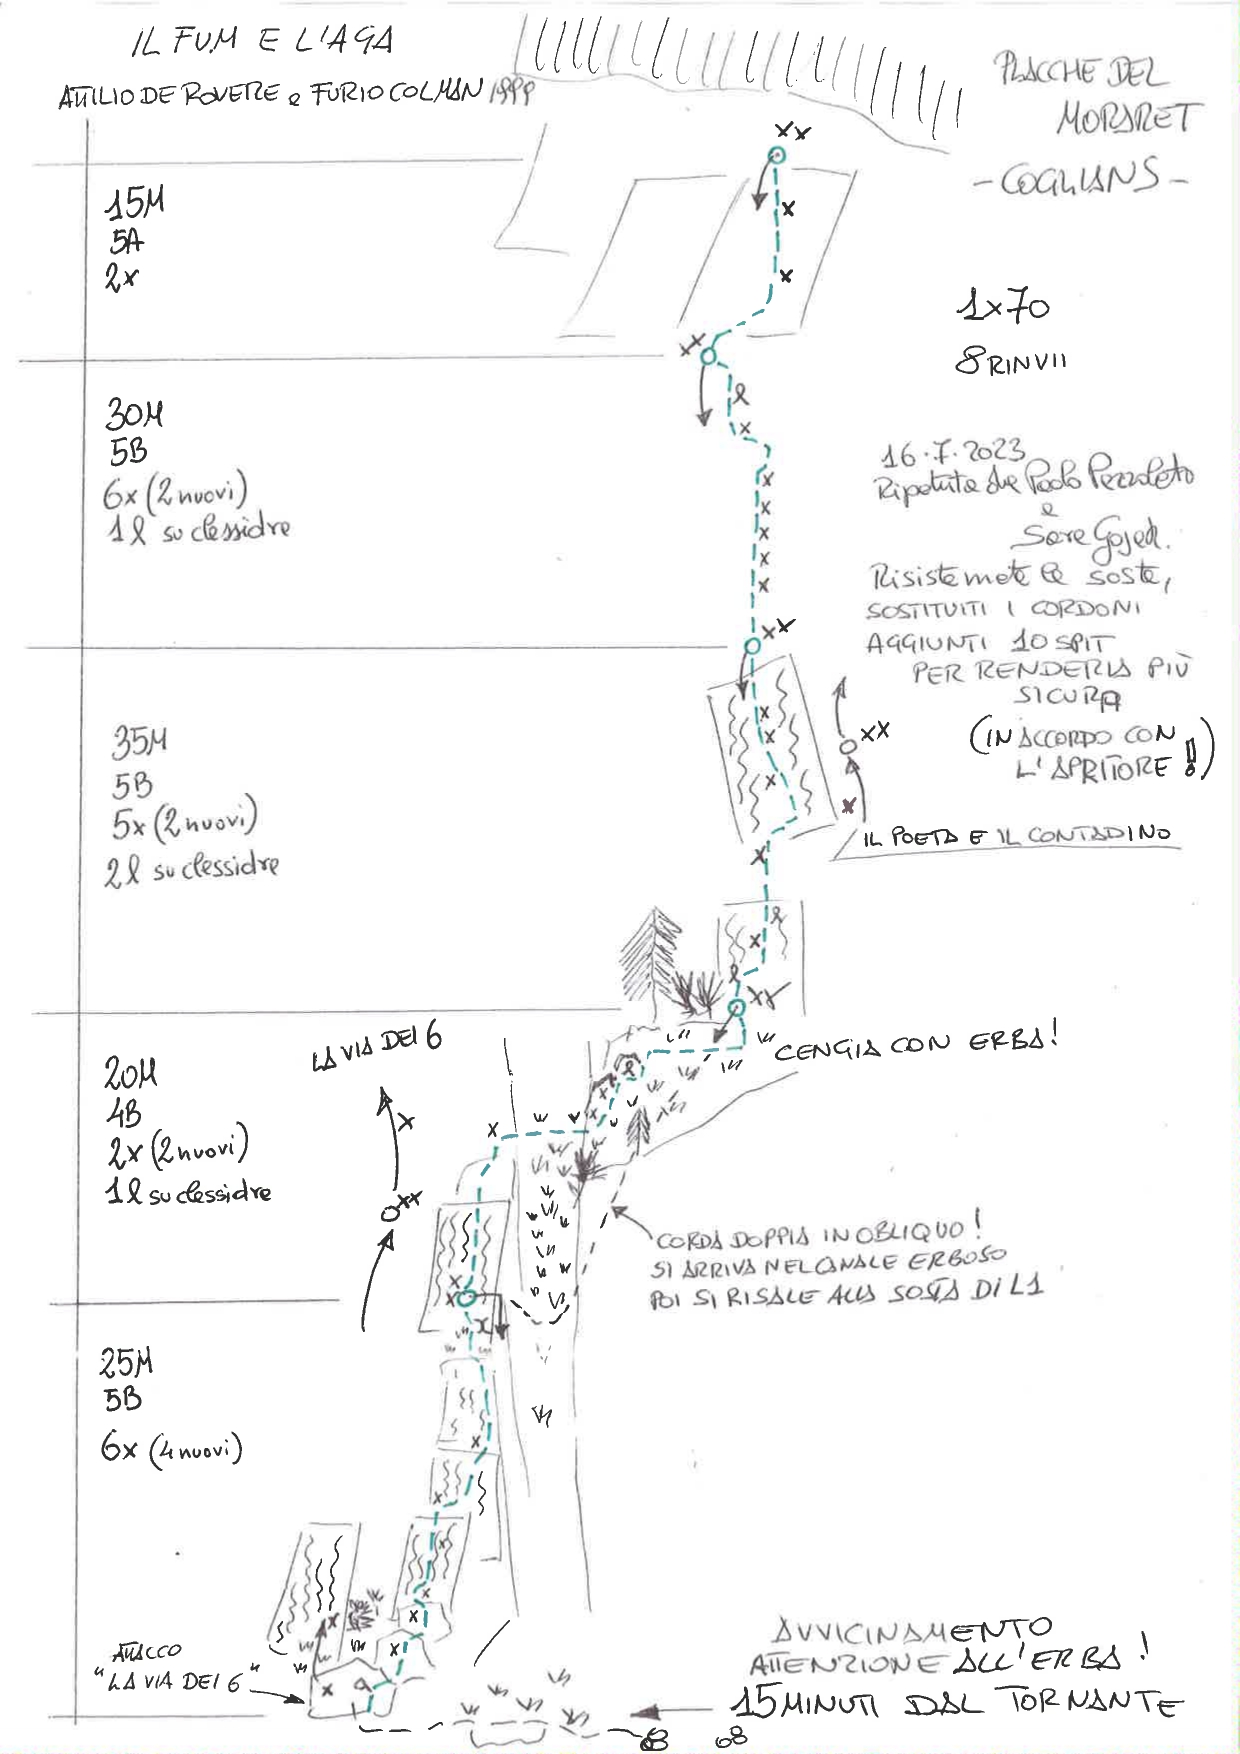 IL FUM E L'AGA
ATTILIO DE ROVERE e FURIO COLMAN 1999
PLACCHE DEL
MORARET
- COGLIANS -
15M
5A
2x
xx
x
x
1x70
8 RINVII
xx
30M
5B
6x (2 nuovi)
1 l su clessidre
l
x
x
x
x
x
x
16.7.2023
Ripetuta da Paolo Pezzoleto
e
Sara Gojak.
Risistemate le soste,
SOSTITUITI I CORDONI
AGGIUNTI 10 SPIT
PER RENDERLA PIÙ
SICURA
(IN ACCORDO CON
L'APRITORE!)
xx
35M
5B
5x (2 nuovi)
2 l su clessidre
x
x
x
x
xx
x
IL POETA E IL CONTADINO
l
x
l
xx
CENGIA CON ERBA!
LA VIA DEI 6
20M
4B
2x (2 nuovi)
1 l su clessidre
x
xx
x
l
x
x
CORDA DOPPIA IN OBLIQUO!
SI ARRIVA NEL CANALE ERBOSO
POI SI RISALE ALLA SOSTA DI L1
x
x
x
25M
5B
6x (4 nuovi)
x
x
x
x
x
x
x
x
ATTACCO
"LA VIA DEI 6"
AVVICINAMENTO
ATTENZIONE ALL'ERBA!
15 MINUTI DAL TORNANTE